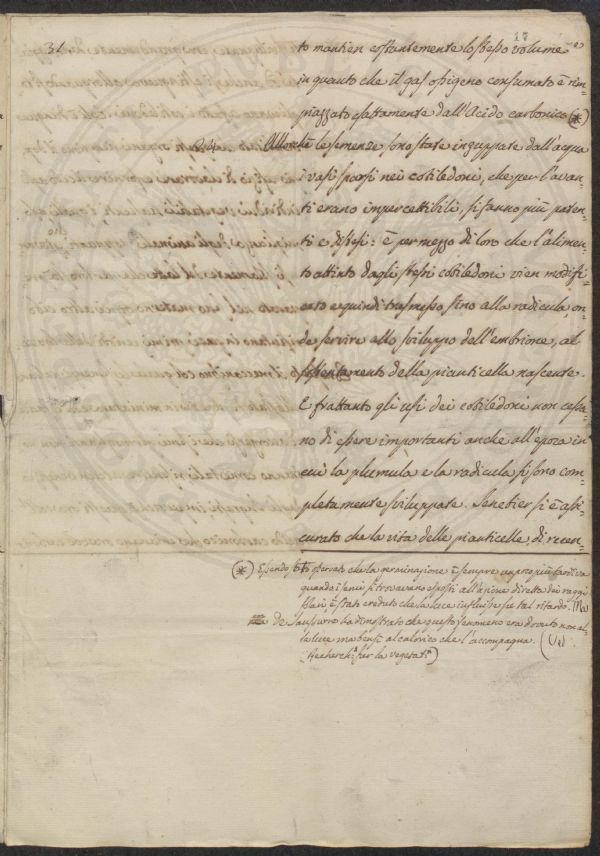 31.
17
to mantien costantemente lo stesso volume
in quanto che il gas ossigeno consumato è rim-
piazzato esattamente dall'Acido carbonico (*)
Allorchè le semenze sono state inzuppate dall'acqua
i vasi sparsi nei cotiledoni, che per l'avan-
ti erano impercettibili, si fanno più paten-
ti e distesi: è per mezzo di loro che l'alimen-
to attinto dagli stessi cotiledoni vien modifi-
cato e quindi trasmesso sino alla radicula, on
de servire allo sviluppo dell'embrione, al
sostentamento della pianticella nascente.
E frattanto gli usi dei cotiledoni non cessa-
no di essere importanti anche all'epoca in
cui la plumula e la radicula si sono com-
pletamente sviluppate. Senebier si è assi-
curato che la vita delle pianticelle di recen-
(*) Essendosi osservato che la germinazione è sempre un poco più tardiva
quando i semi si trovavano esposti all'azione diretta dei raggi
solari, è stato creduto che la luce influisse su tal ritardo. Ma
de Saussure ha dimostrato che questo fenomeno era dovuto non al-
la luce ma bensì al calorico che l'accompagna.
(Recherch.s sur la vegetat.n)